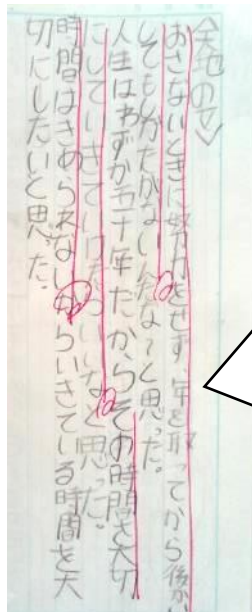 天地の文
おさないときに努力をせず、年を取ってから後か
してもしかたがないんだな～と思った。
人生はわずか五十年だからその時間を大切
にしていきていけたらいいなと思った。
時間はきめられないからいきている時間を大
切にしたいと思った。